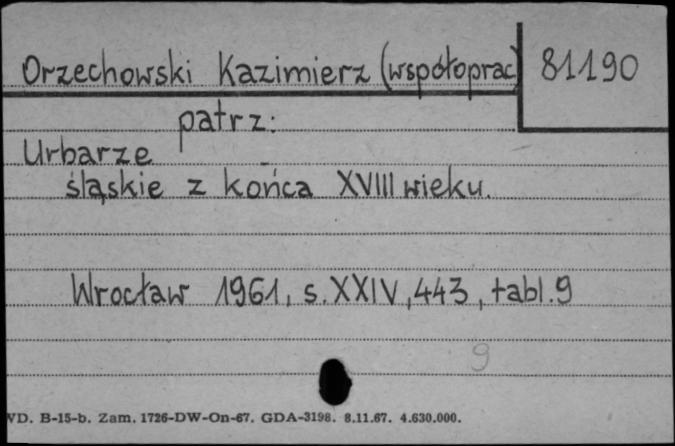 Orzechowski Kazimierz (współoprac) 81190
patrz:
Urbarze
śląskie z końca XVIII wieku.
Wrocław 1961, s. XXIV, 443, tabl. 9
9
WD. B-15-b. Zam. 1726-DW-On-67. GDA-3198. 8.11.67. 4.630.000.